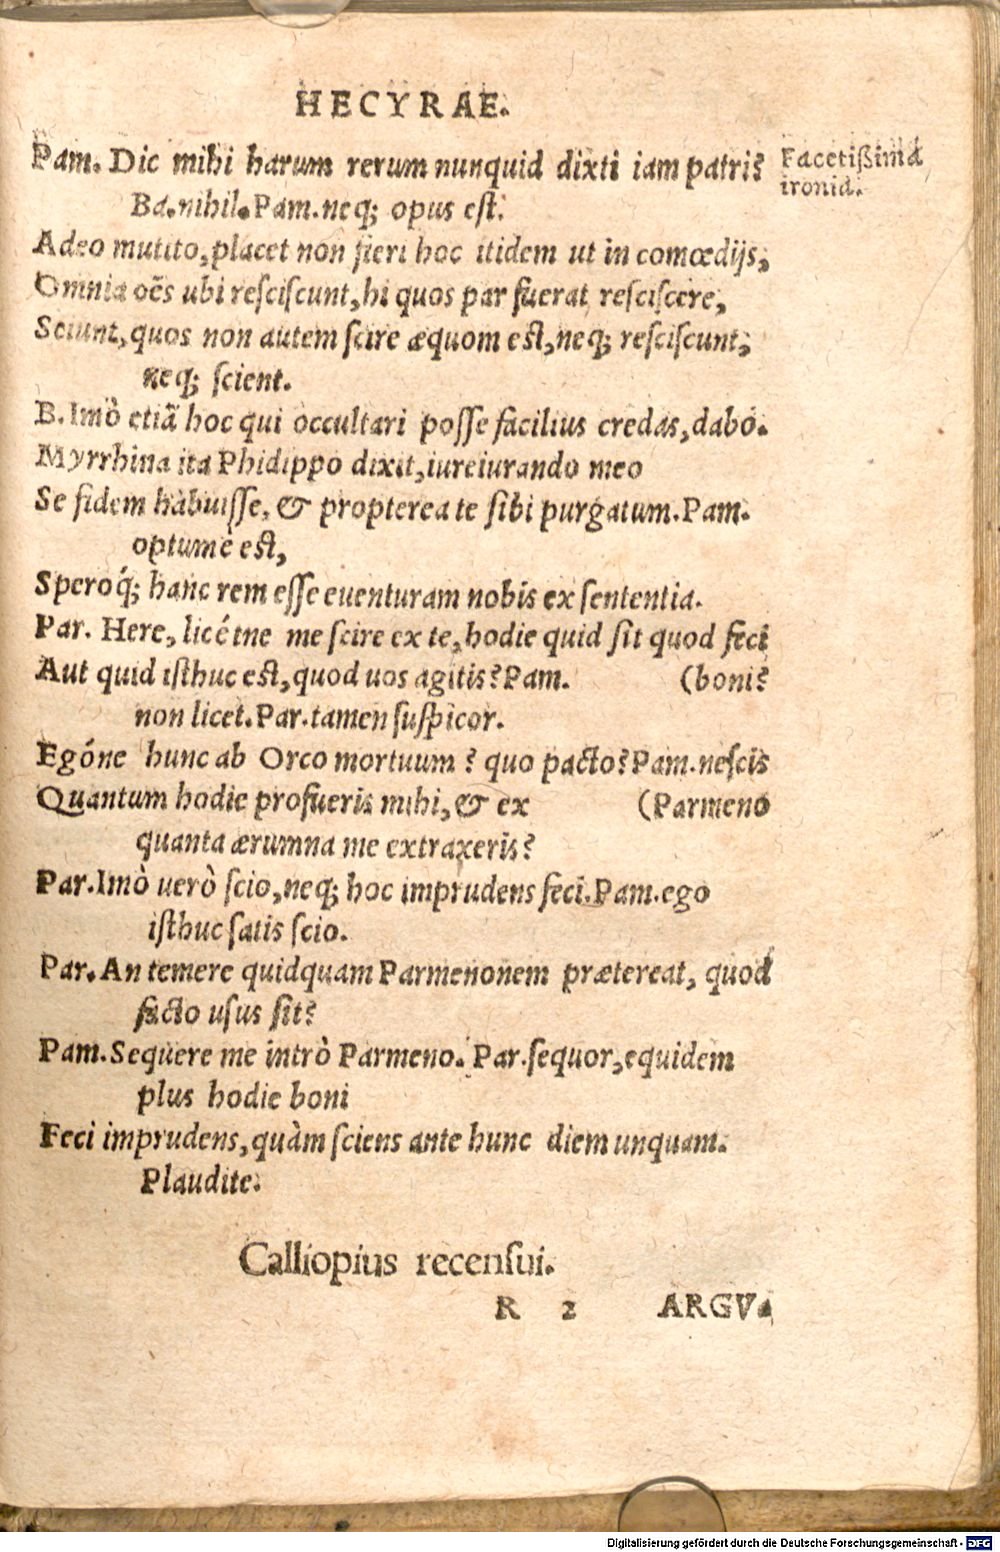 HECYRAE.
Pam. Dic mihi harum rerum nunquid dixti iam patri?
Facetißima
ironia.
Ba. nihil. Pam. neq; opus est.
Adeo mutito, placet non fieri hoc itidem ut in comœdijs,
Omnia oēs ubi resciscunt, hi quos par fuerat resciscere,
Sciunt, quos non autem scire æquom est, neq; resciscunt,
neq; scient.
B. Imò etiã hoc qui occultari posse facilius credas, dabo.
Myrrhina ita Phidippo dixit, iureiurando meo
Se fidem habuisse, & propterea te sibi purgatum. Pam.
optume est,
Speroq́; hanc rem esse euenturam nobis ex sententia.
Par. Here, licétne me scire ex te, hodie quid sit quod feci
Aut quid isthuc est, quod uos agitis? Pam. (boni?
non licet. Par. tamen suspicor.
Egóne hunc ab Orco mortuum? quo pacto? Pam. nescis
Quantum hodie profueris mihi, & ex (Parmeno
quanta ærumna me extraxeris?
Par. Imò uerò scio, neq; hoc imprudens feci. Pam. ego
isthuc satis scio.
Par. An temere quidquam Parmenonem prætereat, quod
facto usus sit?
Pam. Sequere me intrò Parmeno. Par. sequor, equidem
plus hodie boni
Feci imprudens, quàm sciens ante hunc diem unquam.
Plaudite.
Calliopius recensui.
R 2 ARGV-
Digitalisierung gefördert durch die Deutsche Forschungsgemeinschaft - DFG